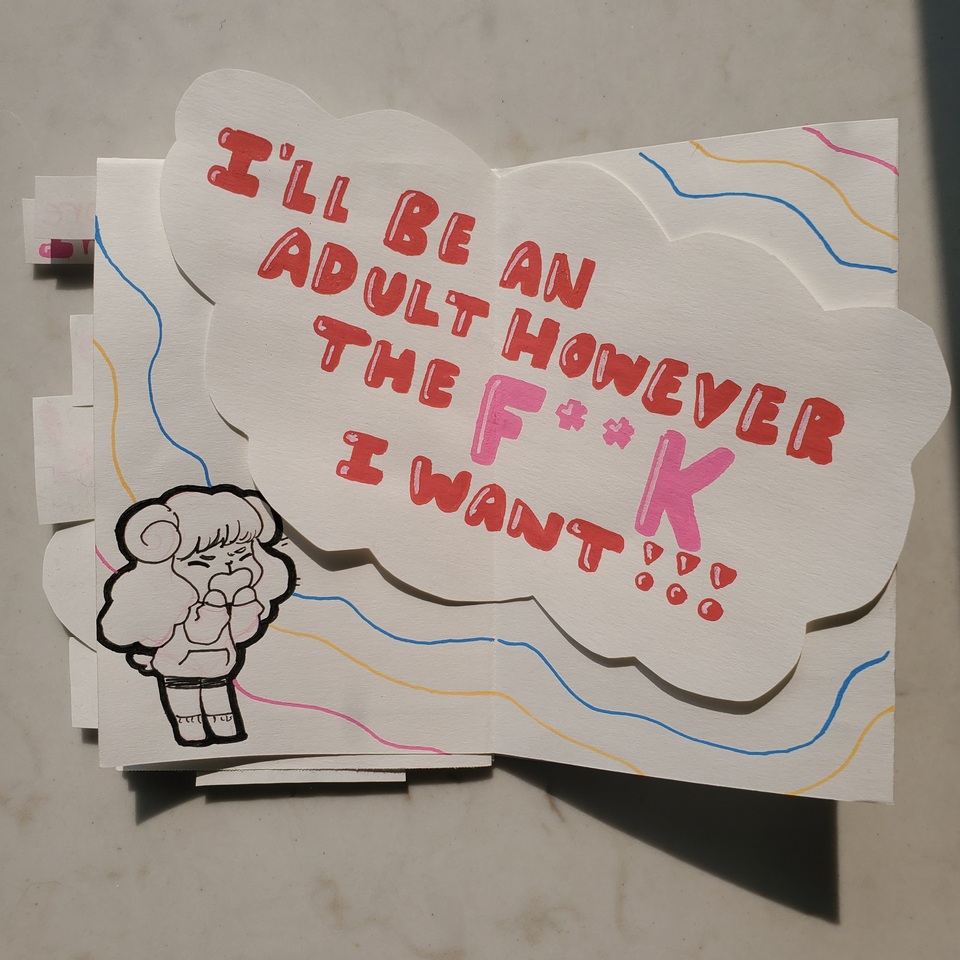 I'LL BE AN
ADULT HOWEVER
THE F**K
I WANT!!!